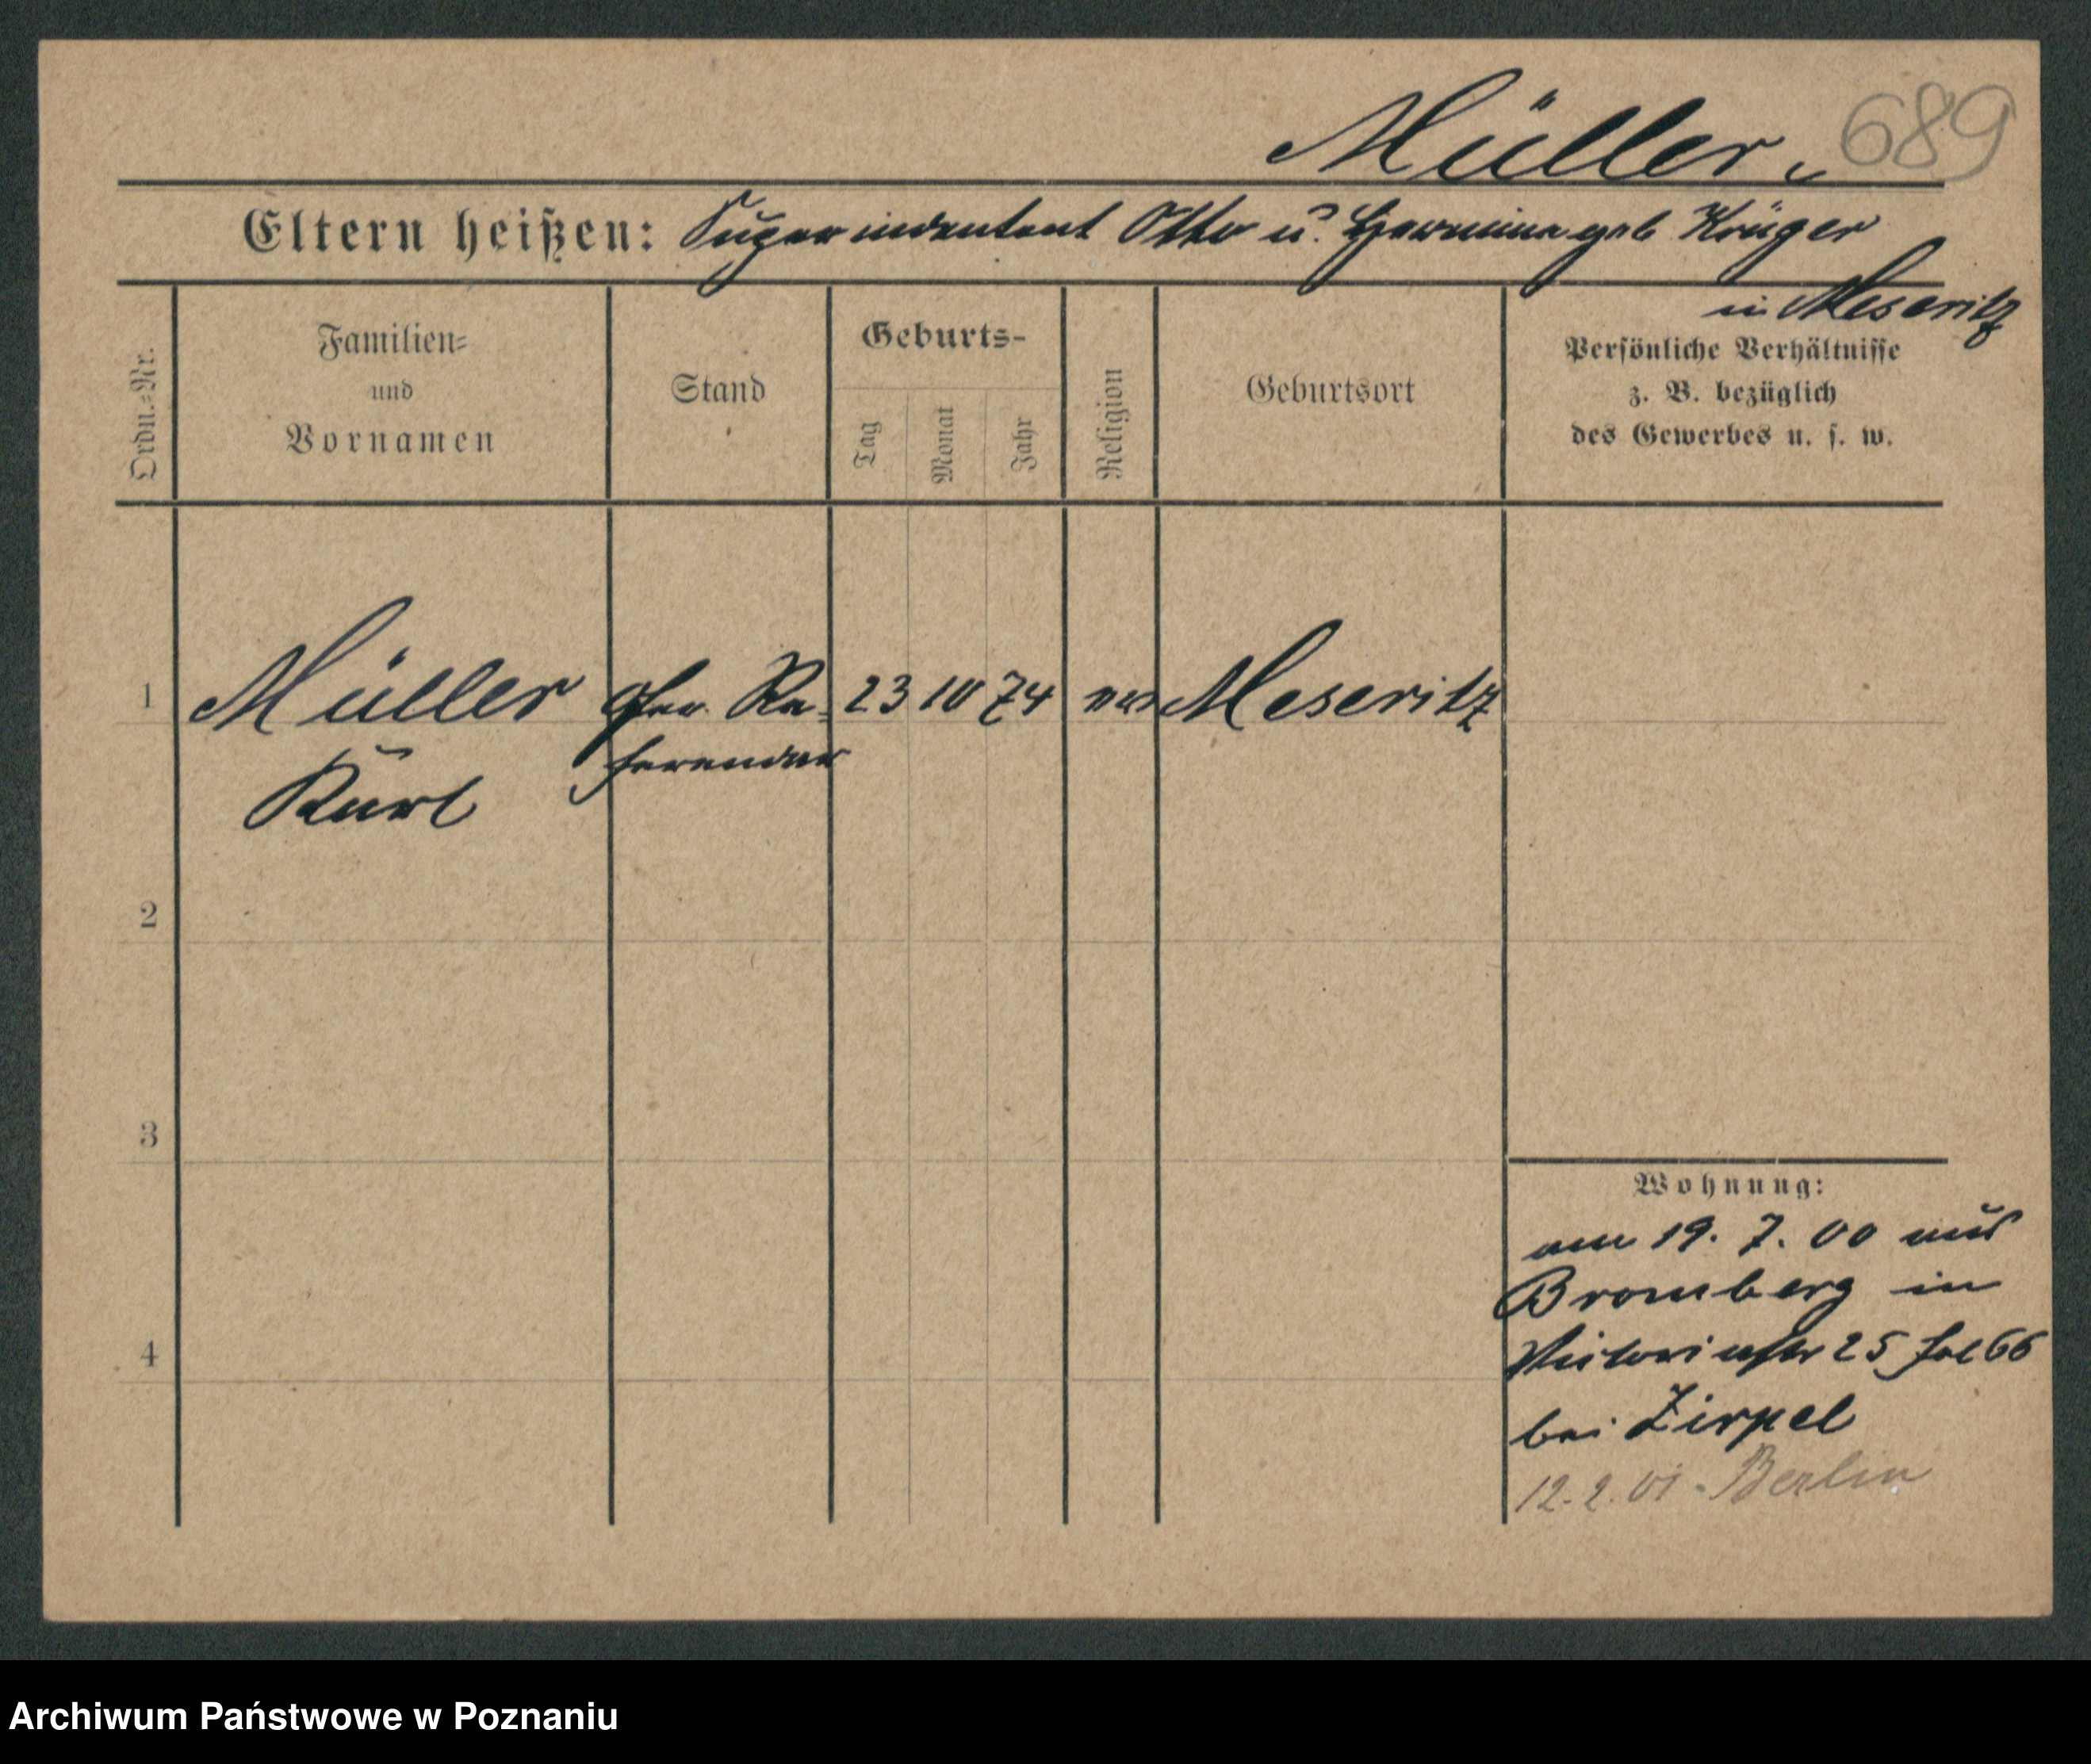 Müller
689
Eltern heißen: Superindentent Otto u. Hermine geb Krüger
in Meseritz
Ordn.=Nr.
Familien=
und
Vornamen
Stand
Geburts-
Tag
Monat
Jahr
Religion
Geburtsort
Persönliche Verhältnisse
z. B. bezüglich
des Gewerbes u. s. w.
1 Müller Ger. Re- 23 10 74 Meseritz
ferendar
Kurt
2
3
4
Wohnung:
am 19. 7. 00 aus
Bromberg in
Victoriastr 25 Jal 66
bei Zirpel
12. 2. 01. Berlin
Archiwum Państwowe w Poznaniu